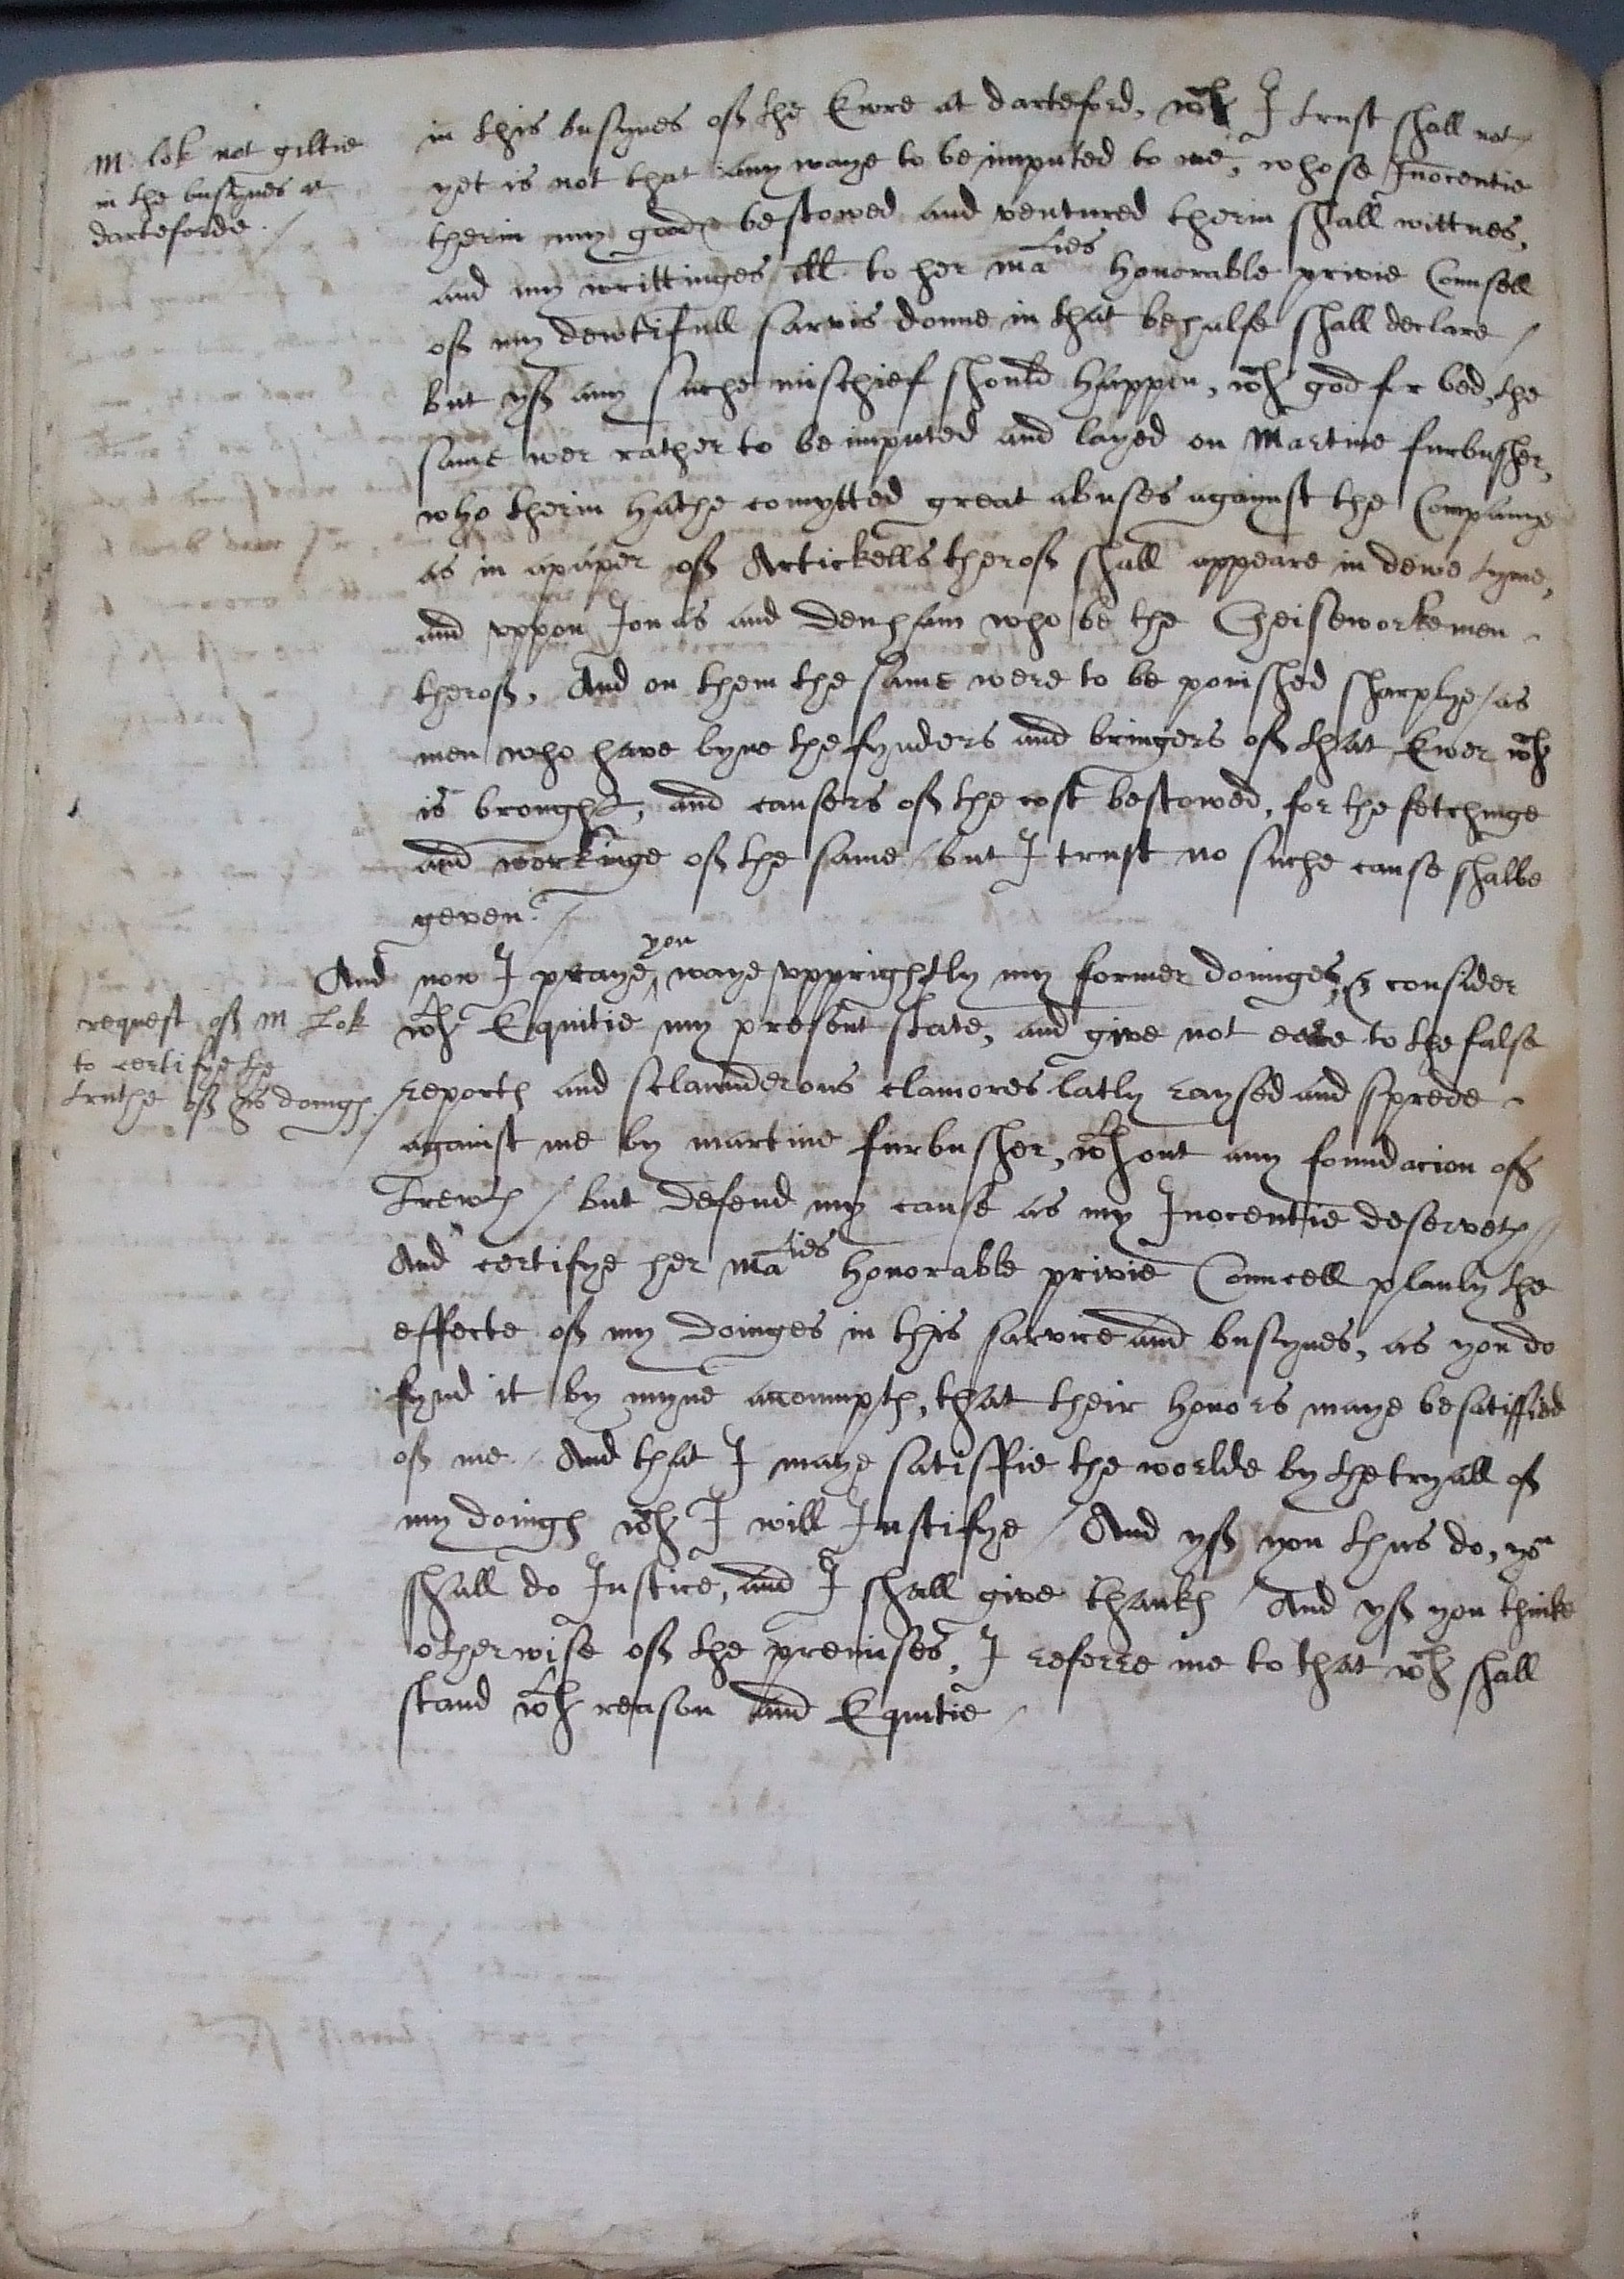 M. lok not giltie
in the busynes at
darteforde.
in this busynes of the Ewre at darteford, wch I trust shall not
yet is not that any waye to be imputed to me, whose Inocentie
therin my goodes bestowed and ventured therin shall wittnes,
and my writtinges all to her maties Honorable privie Counsell
of my dewtifull sarvis donne in that behalfe shall declare /
but yf any suche mischief should Happen, wch god for bed, the
same wer rather to be imputed and layed on Martine furbusher,
who therin Hathe comytted great abuses agaynst the Companye
as in a paper of Artickells therof shall appeare in dewe tyme,
and uppon Jonas and Denham who be the Cheiseworkemen
therof, And on them the same were to be ponished sharplye / as
men who have byne the fynders and bringers of that Ewer wch
is brought, and causers of the cost bestowed, for the fetchinge
and workinge of the same / but I trust no suche cause shalbe
geven. /
And now I praye you, waye upprightly my former doinges, & consider
request of M Lok
to certifye the
truthe of his doinges.
wth Equitie my present state, and give not eare to the false
reportes and sclaunderous clamores latly raysed and sprede
against me by martine furbusher, wthout any foundacion of
Trewth / but defend my cause as my Inocentie deserveth //
And certifye her maties Honorable privie Councell planly the
effecte of my doinges in this sarvice and busynes, as you do
fynd it by myne accompth, that their Honors maye be satisffied
of me / And that I maye satisffie the worlde by the tryall of
my doinges wch I will Justifye / And yf you thus do, you
shall do Justice, and I shall give thankes / And yf you thinke
otherwise of the premises, I referre me to that wch shall
stand wth reason and Equitie /